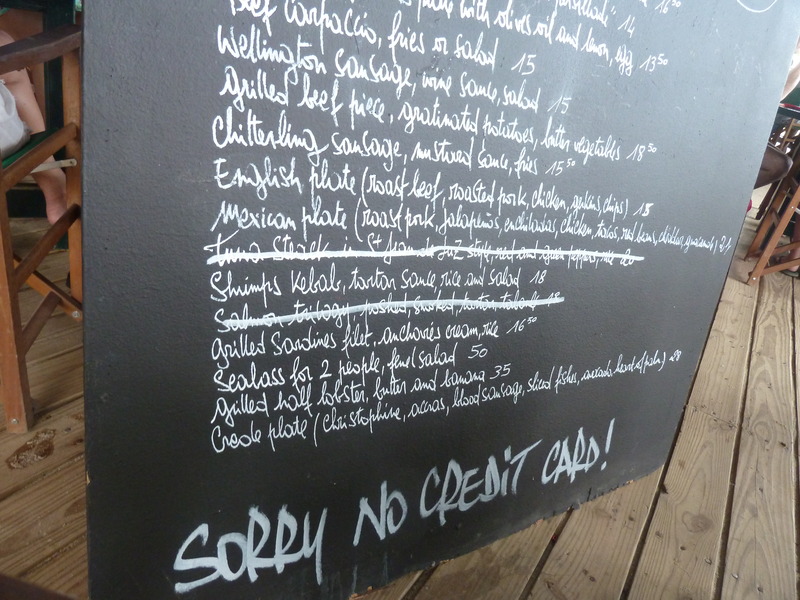 with olives oil and lemon, 14
Beef carpaccio, fries or salad 15 13⁵⁰
Wellington sausage, wine sauce, salad 15
grilled beef piece, gratinated potatoes, butter vegetables 18⁵⁰
Chitterling sausage, mustard sauce, fries 15⁵⁰
English plate (roast beef, roasted pork, chicken, chips) 18
Mexican plate (roast pork, jalapeños, enchiladas, chicken, tacos, red beans, guacamole) 21
Tuna Steack in St style, red and green peppers, rice 20
Shrimps Kebab, tartar sauce, rice and salad 18
Salmon trilogy poshed, smoked, tartar, 18
grilled Sardines filet, anchovies cream, rice 16⁵⁰
Seabass for 2 people, fenel salad 50
grilled half lobster, butter and banana 35
Creole plate (christophine, accras, blood sausage, sliced fishes, avocado, heart of palm) 20
SORRY NO CREDIT CARD!